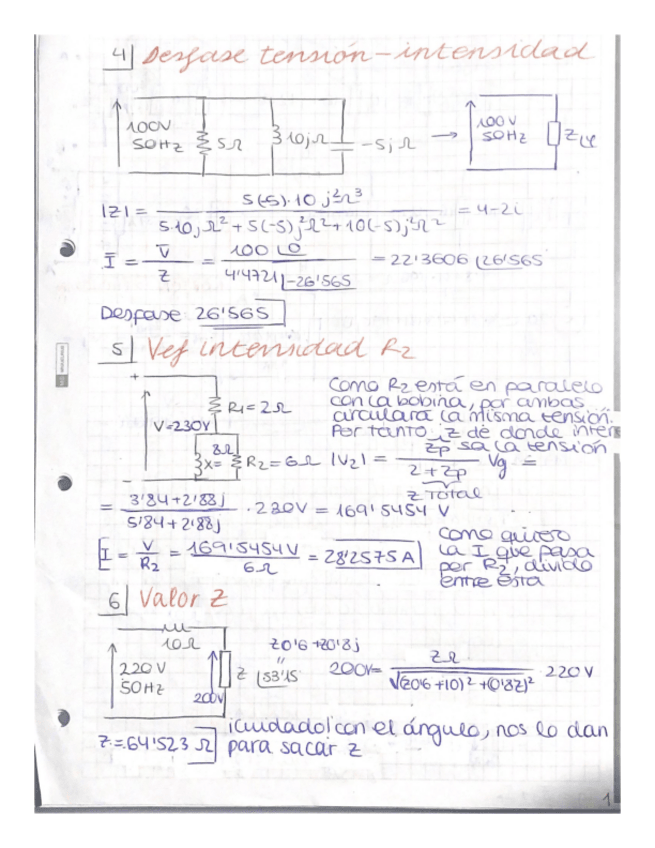 4| Desfase tensión-intensidad
100V
50Hz
5Ω
10jΩ
-5jΩ
→
100V
50Hz
Z∠φ
|Z| = 5(-5)·10 j²Ω³ / 5·10jΩ² + 5(-5)j²Ω² + 10(-5)j²Ω² = 4-2i
I = V/Z = 100∠0 / 4'4721∠-26'565 = 22'3606 ∠26'565
Desfase 26'565
5| Vef intensidad R2
+
V=230V
R1=2Ω
8Ω
X=
R2=6Ω
-
Como R2 está en paralelo
con la bobina, por ambas
circulará la misma tensión.
Por tanto, Z de donde inter
sa la tensión
|V2| = Zp / 2+Zp Vg =
Z Total
= 3'84+2'88j / 5'84+2'88j · 230V = 169'5454 V
I = V/R2 = 169'5454V / 6Ω = 28'2575A
Como quiero
la I que pasa
por R2, divido
entre ésta
6| Valor Z
10Ω
220V
50Hz
200V
Z ∠53'15
Z0'6+Z0'8j
200V= ZΩ / √(Z0'6+10)²+(0'8Z)² 220V
Z=64'523Ω
¡Cuidado! con el ángulo, nos lo dan
para sacar Z
1